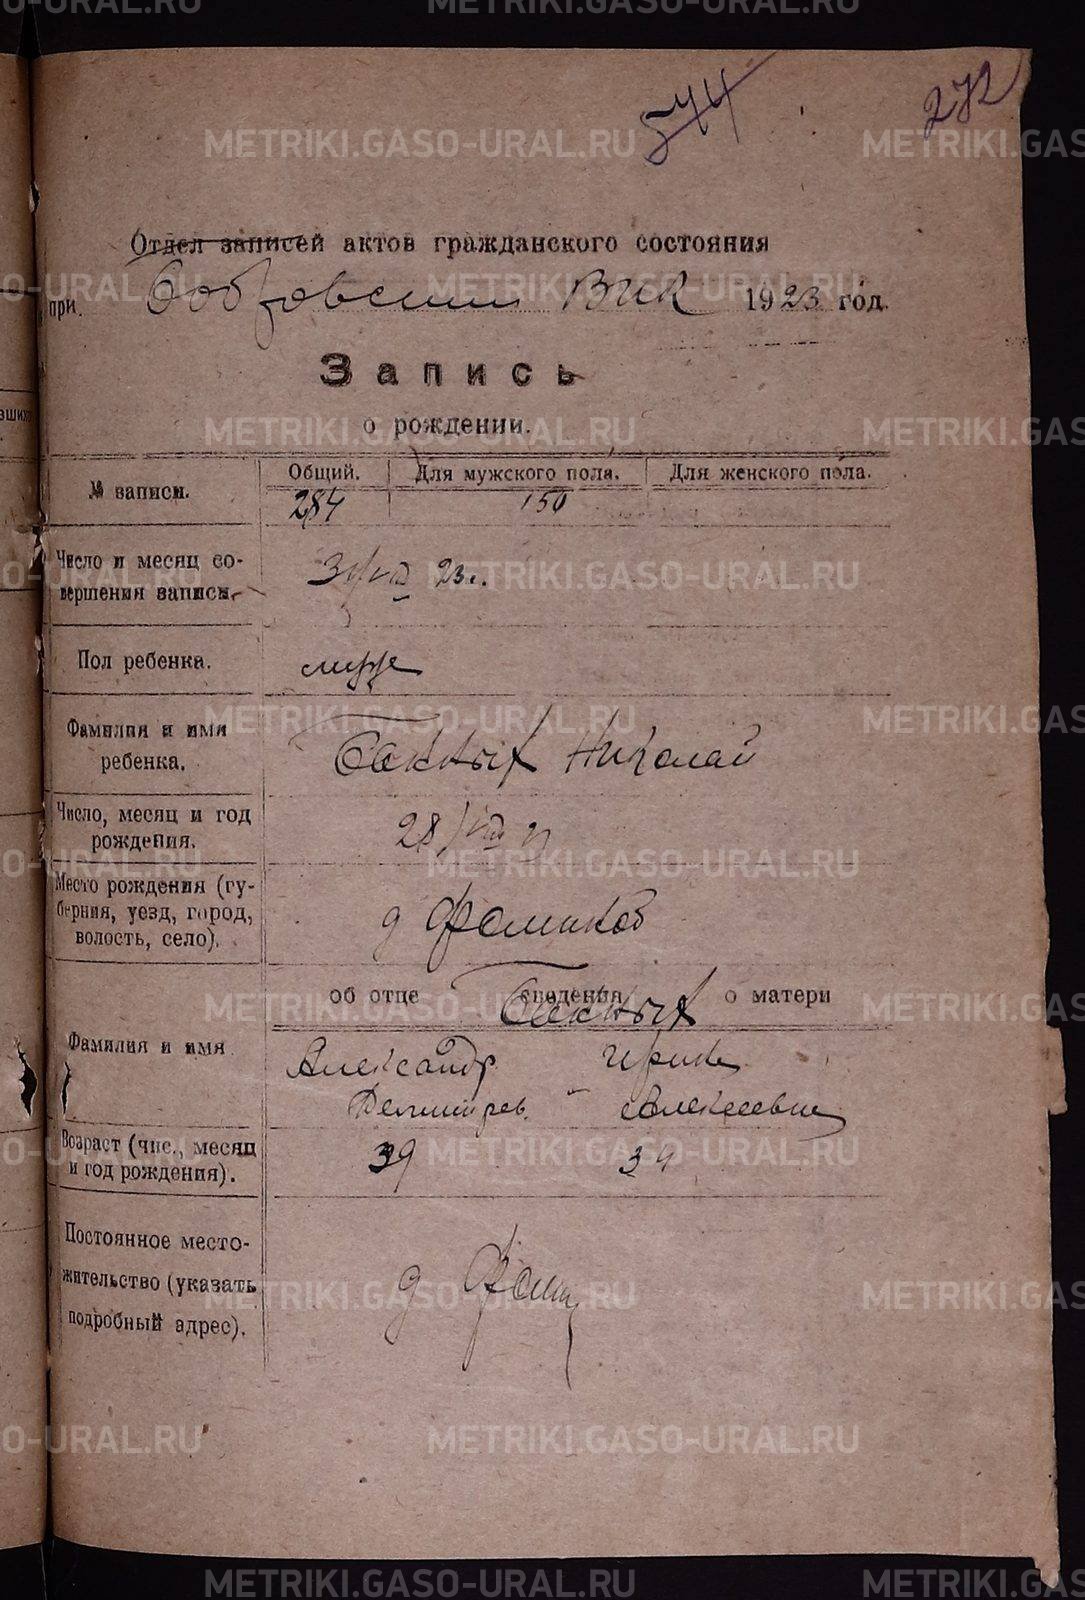 544
272
Отдел записей актов гражданского состояния
при Бобровском ВИК 1923 год.
Запись
о рождении.
№ записи. Общий. Для мужского пола. Для женского пола.
284 150
Число и месяц со-
вершения записи. 31/VIII 23г.
Пол ребенка. муж
Фамилия и имя
ребенка. Бакиных Николай
Число, месяц и год
рождения. 28/VIII 23
Место рождения (гу-
берния, уезд, город,
волость, село). д Фоминой
об отце сведения о матери
Фамилия и имя
Александр Ирина
Дмитрев. Алексеевна
Возраст (чис., месяц
и год рождения). 39 34
Постоянное место-
жительство (указать
подробный адрес). д Фомин
METRIKI.GASO-URAL.RU